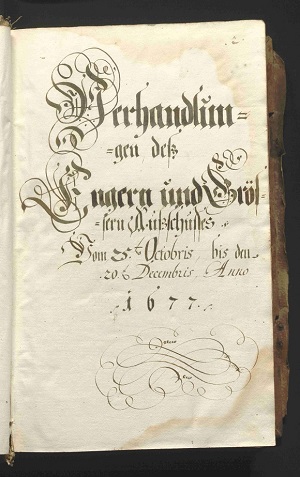 Verhandlun=
=gen deß
Engern und Größ=
=sern Außschusses.
Vom 25.t Octobris, bis den
20.t Decembris, Anno
1677.